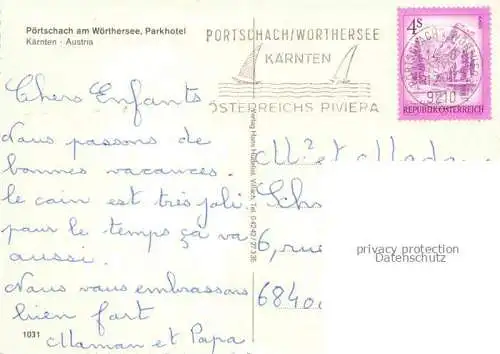 Pörtschach am Wörthersee, Parkhotel
Kärnten · Austria
PÖRTSCHACH/WÖRTHERSEE
KÄRNTEN
ÖSTERREICHS RIVIERA
4S
9210
REPUBLIK ÖSTERREICH
Chers Enfants
Nous passons de
bonnes vacances.
le coin est très joli.
pour le temps ça va
aussi.
Nous vous embrassons
bien fort
Maman et Papa
1031
Mr et Madame
6, rue
6840
privacy protection
Datenschutz